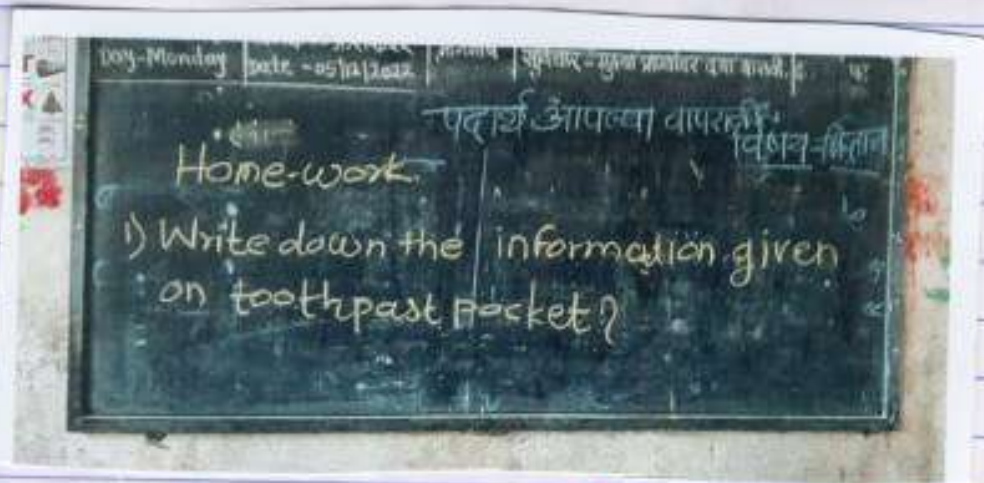 Day-Monday
Date - 05/12/2022
पदार्थ आपल्या वापरातील
विषय-विज्ञान
Home-work.
1) Write down the information given
on toothpast packet?